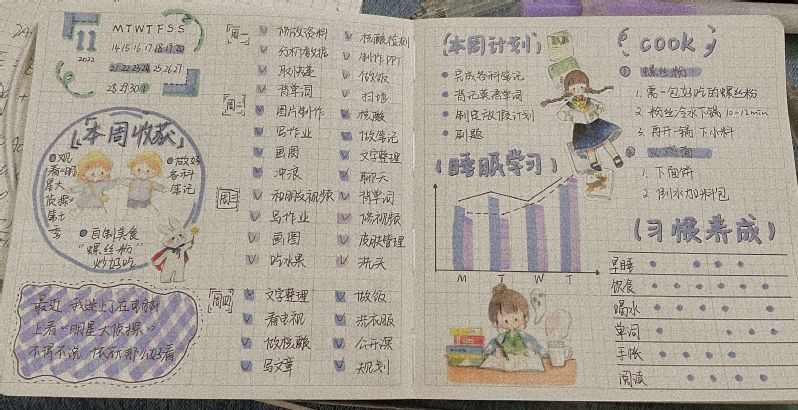 11
2022
M T W T F S S
14 15 16 17 18 19 20
21 22 23 24 25 26 27
28 29 30 1
本周收获
观看“明星大侦探”第七季
做好各科笔记
自制美食
“螺丝粉”
炒好吃
最近 我迷上了在
上看“明星大侦探”
不得不说 依然那么好看
周一
分析数据
取快递
背单词
核酸检测
制作PPT
做饭
扫地
周二
图片制作
写作业
画图
冲浪
核酸
做笔记
文字整理
聊天
周三
和朋友视频
写作业
画图
吃水果
背单词
修视频
皮肤管理
洗头
周四
文字整理
看电视
做核酸
写文章
做饭
洗衣服
公开课
规划
本周计划
完成各科笔记
背记英语单词
制定放假计划
刷题
睡眠学习
M T W T
cook
① 螺丝粉
1. 煮一包好吃的螺丝粉
2. 粉丝冷水下锅 10-12min
3. 再开一锅 下小料
②
1. 下面饼
2. 倒水加料包
习惯养成
早睡
饮食
喝水
单词
手帐
阅读